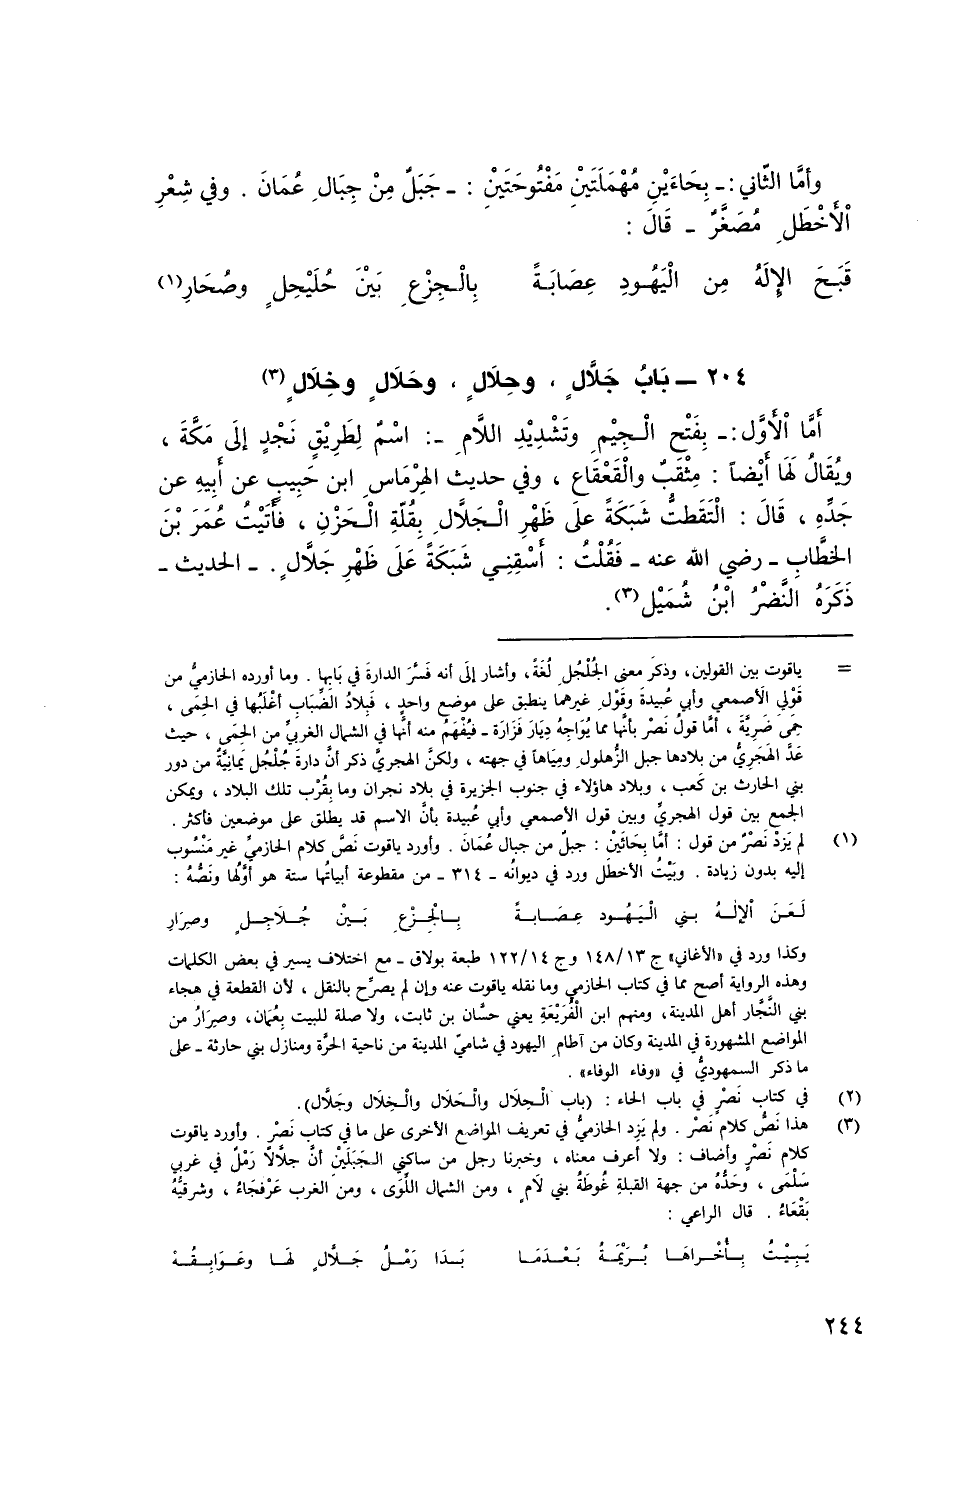 وأمَّا الثّاني :ـ بِحَاءَيْنِ مُهْمَلَتَيْنِ مَفْتُوحَتَيْنِ : ـ جَبَلٌ مِنْ جِبَالِ عُمَانَ . وفي شِعْرِ
اْلأَخْطَلِ مُصَغَّرٌ ـ قَالَ :
قَبَحَ الإِلَهُ مِن الْيَهُودِ عِصَابَةً    بِالْجِزْعِ بَيْنَ حُلَيْحِلٍ وصُحَارِ(١)
٢٠٤ ــ بَابُ جَلَّالٍ ، وحِلَالٍ ، وحَلَالٍ وخِلَالٍ(٣)
أَمَّا اْلأَوَّل :ـ بِفَتْحِ الْجِيْمِ وتَشْدِيْدِ اللَّامِ ـ: اسْمٌ لِطَرِيْقِ نَجْدٍ إلَى مَكَّةَ ،
ويُقَالُ لَهَا أَيْضاً : مِثْقَبٌ والْقَعْقَاع ، وفي حديث الهِرْمَاس ابن حَبِيبٍ عن أَبِيهِ عن
جَدِّهِ ، قَالَ : الْتَقَطتُّ شَبَكَةً علَى ظَهْرِ الْجَلَّالِ بِقُلَّةِ الْحَزْنِ ، فَأَتَيْتُ عُمَرَ بْنَ
الخطَّابِ ـ رضي الله عنه ـ فَقُلْتُ : أَسْقِنِي شَبَكَةً عَلَى ظَهْرِ جَلَّالٍ . ـ الحديث ـ
ذَكَرَهُ النَّضْرُ ابْنُ شُمَيْل(٣).
= ياقوت بين القولين، وذكر معنى الجُلْجُلِ لُغَةً، وأشار إلَى أنه فَسَّرَ الدارةَ في بَابِها . وما أورده الحازميُّ من
قَوْلِي الأصمعي وأبي عُبيدةَ وقَوْلِ غيرهما ينطبق على موضع واحدٍ ، فَبِلادُ الضِّبَابِ أغْلَبُها في الحِمَى ،
حِمَى ضَرِيَّةَ ، أمَّا قولُ نَصْر بأنَّها مما يُوَاجِهُ دِيَارَ فَزَارَةَ ـ فيُفْهَمُ منه أنَّها في الشمال الغربيِّ من الحِمَى ، حيث
عَدَّ الهَجَرِيُّ من بلادها جبل الزُّهلول ومِيَاهاً في جهته ، ولكنَّ الهجريَّ ذكر أنَّ دارةَ جُلْجُل يَمانِيَّةٌ من دور
بني الحارث بن كَعب ، وبلاد هاؤلاء في جنوب الجزيرة في بلاد نجران وما بقُرْب تلك البلاد ، ويمكن
الجمع بين قول الهجريِّ وبين قول الأصمعي وأبي عُبيدة بأنَّ الاسم قد يطلق على موضعين فأكثر .
(١) لم يَزِدْ نَصْرٌ من قول : أمَّا بِحَائَيْنِ : جبلٌ من جبال عُمَانَ . وأورد ياقوت نَصَّ كلام الحازميِّ غير مَنْسُوب
إليه بدون زيادة . وبَيْتُ الأخطَلِ ورد في ديوانه ـ ٣١٤ ـ من مقطوعة أبياتُها ستة هو أوَّلُها ونَصُّهُ :
لَعَنَ اْلإلٰهُ بني الْيَهُودِ عِصَابَةً    بِالْجَزْعِ بَيْنَ جُلَاجِلٍ وصِرَارِ
وكذا ورد في «الأغاني» ج ١٤٨/١٣ وج ١٢٢/١٤ طبعة بولاق ـ مع اختلاف يسير في بعض الكلمات
وهذه الرواية أصح مما في كتاب الحازمي وما نقله ياقوت عنه وإن لم يصرّح بالنقل ، لأن القطعة في هجاء
بني النَّجَّار أهل المدينة، ومنهم ابن الْفُرَيْعَةِ يعني حسَّان بن ثابت، ولا صلة للبيت بِعُمَان، وصِرَارٌ من
المواضع المشهورة في المدينة وكان من آطامِ اليهود في شاميّ المدينة من ناحية الحرَّة ومنازل بني حارثة ـ على
ما ذكر السمهوديُّ في «وفاء الوفاء» .
(٢) في كتاب نَصْرٍ في باب الحاء : (باب الْحِلَال والْحَلَال والْخِلَال وجَلَّال).
(٣) هذا نَصُّ كلام نَصْر . ولم يَزِد الحازميُّ في تعريف المواضع الأخرى على ما في كتاب نَصْر . وأورد ياقوت
كلام نَصْرٍ وأضاف : ولا أعرف معناه ، وخبرنا رجل من ساكني الْجَبَلَيْنِ أنَّ جلَّالاً رَمْلٌ في غربي
سَلْمَى ، وحَدُّهُ من جهة القبلةِ غُوطَةُ بني لأمٍ ، ومن الشمال اللِّوَى ، ومن الغرب عَرْفَجَاءُ ، وشرقيُّهُ
بَقْعَاءُ . قال الراعي :
يَبِيْتُ بِأُخْراهَا بُرَيْمَةُ بَعْدَمَا    بَدَا رَمْلُ جَلَّالٍ لَهَا وعَوَابِقُهْ
٢٤٤